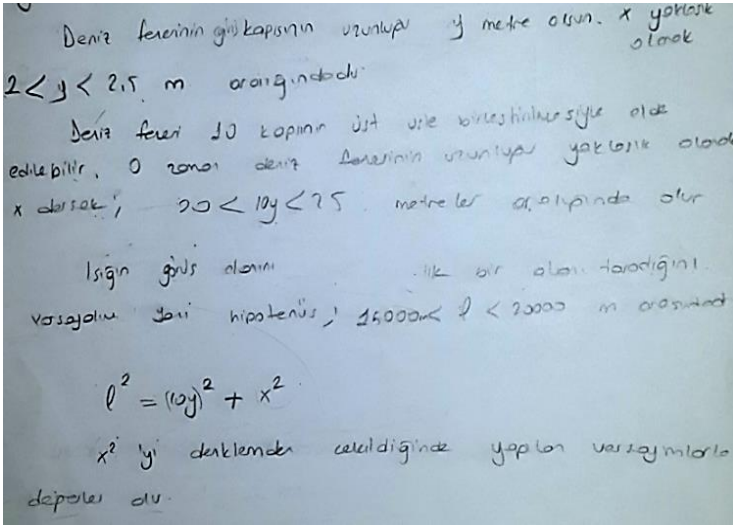 Deniz fenerinin giriş kapısının uzunluğu y metre olsun. x yaklaşık
olarak
2 < y < 2,5 m aralığındadır.
Deniz feneri 10 kapının üst üste birleştirilmesiyle elde
edilebilir. O zaman deniz fenerinin uzunluğu yaklaşık olarak
x dersek; 20 < 10y < 25 metreler aralığında olur
Işığın görüş alanını lik bir alanı taradığını
varsayalım yani hipotenüs; 15000 < l < 20000 m arasında
l² = (10y)² + x²
x² 'yi denklemden çekildiğinde yapılan varsayımlarla
değerler alır.